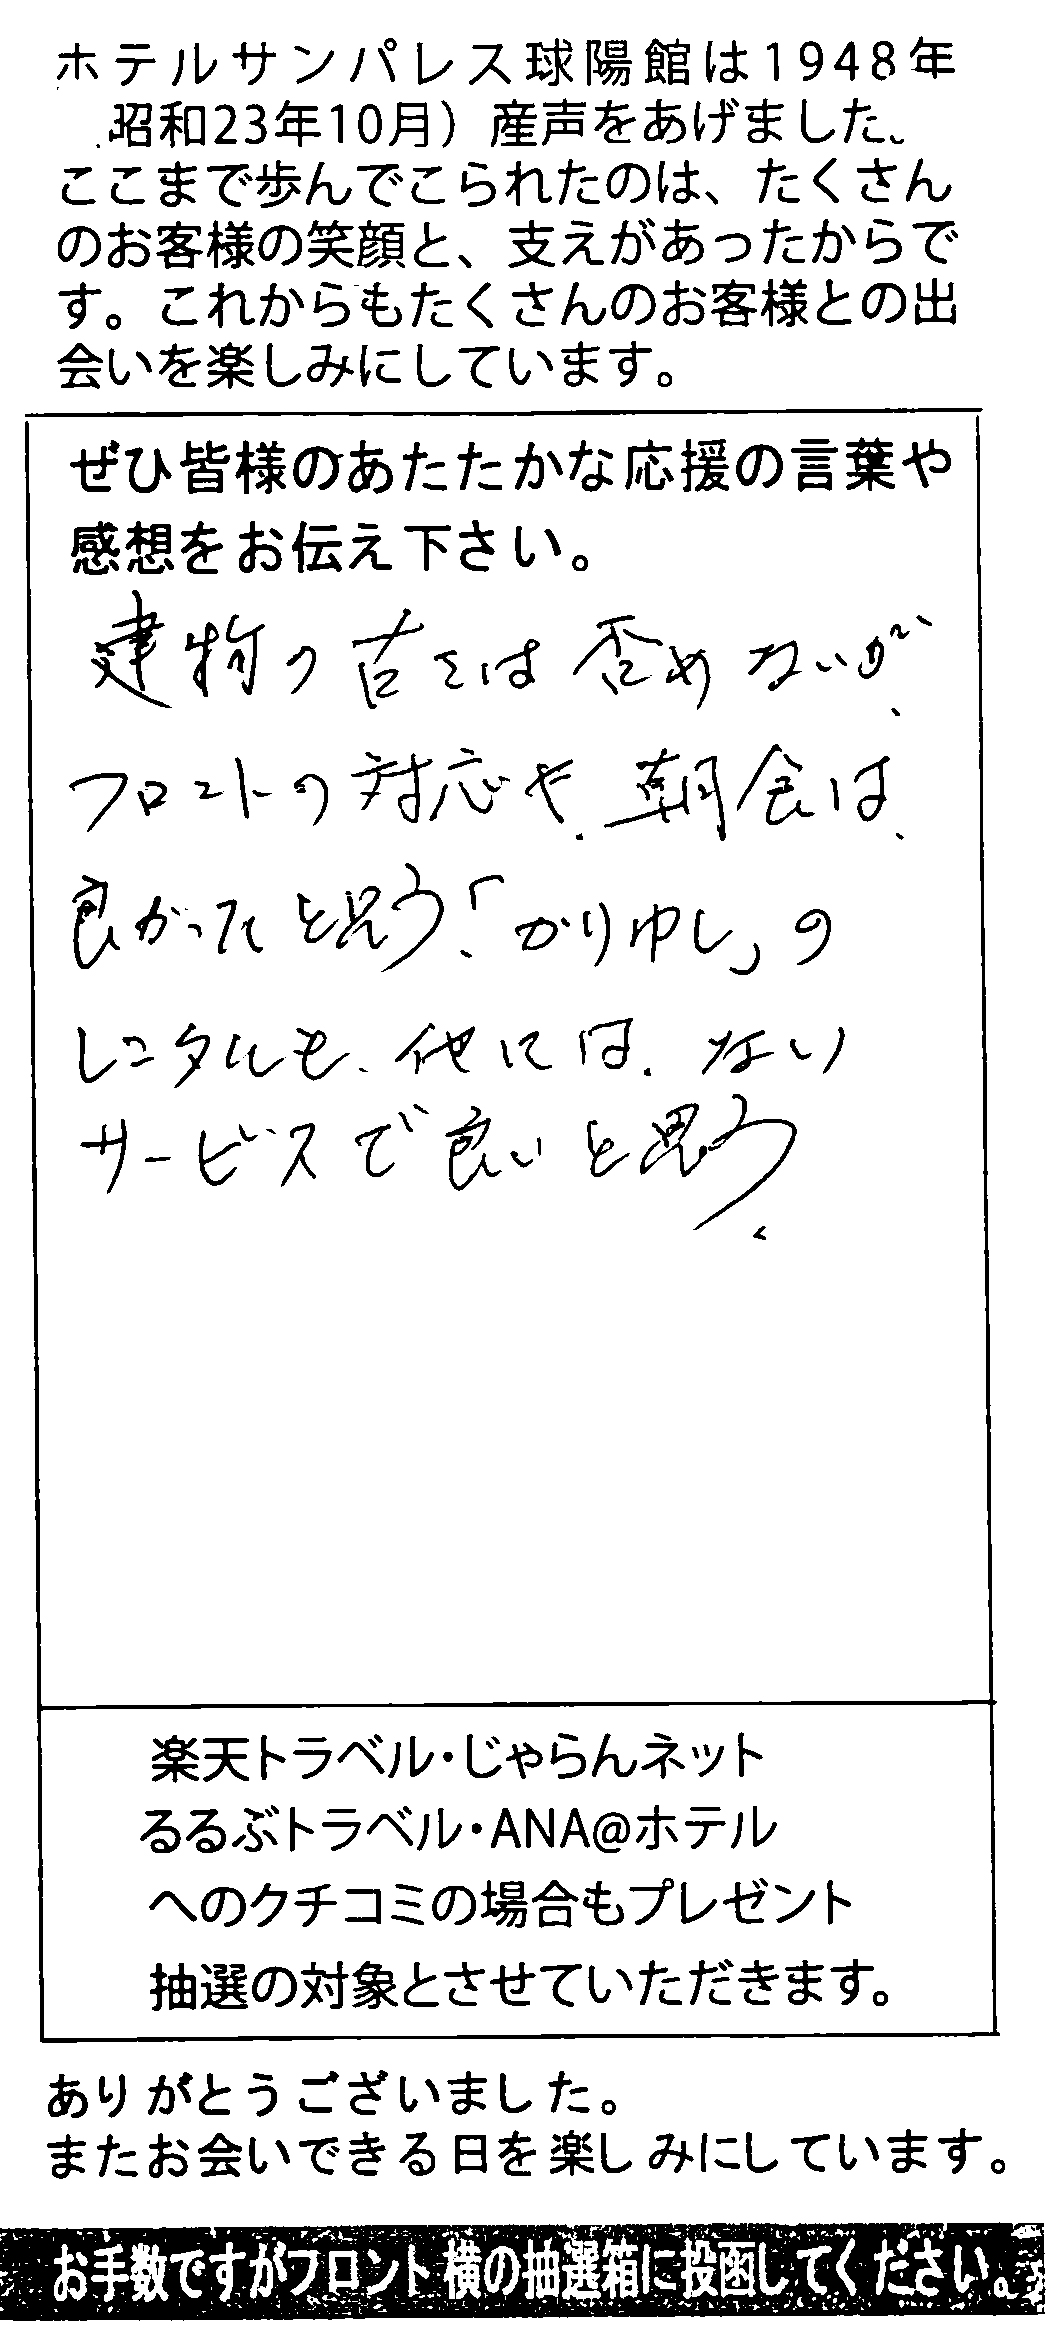 ホテルサンパレス球陽館は1948年
昭和23年10月）産声をあげました、
ここまで歩んでこられたのは、たくさん
のお客様の笑顔と、支えがあったからで
す。これからもたくさんのお客様との出
会いを楽しみにしています。
ぜひ皆様のあたたかな応援の言葉や
感想をお伝え下さい。
建物の古さは否めないが、
フロントの対応や、朝食は、
良かったと思う。「かりゆし」の
レンタルも、他には、ない
サービスで良いと思う。
楽天トラベル・じゃらんネット
るるぶトラベル・ANA@ホテル
へのクチコミの場合もプレゼント
抽選の対象とさせていただきます。
ありがとうございました。
またお会いできる日を楽しみにしています。
お手数ですがフロント横の抽選箱に投函してください。